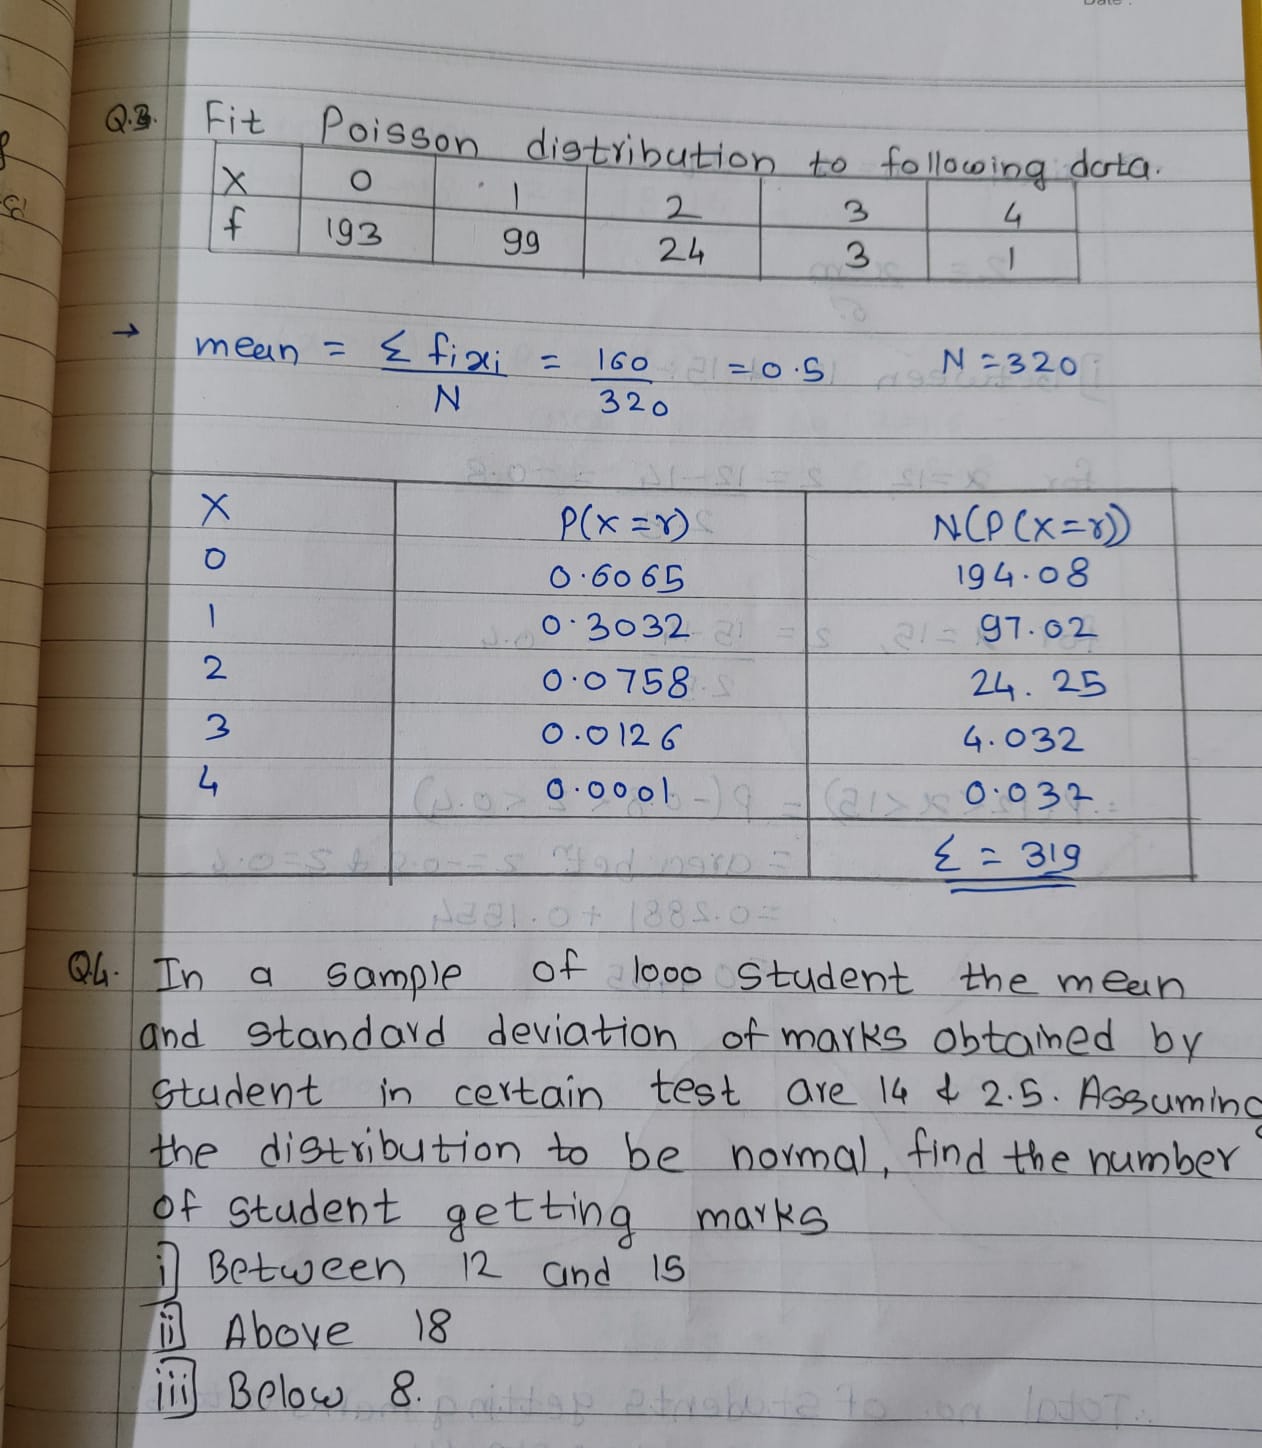 Q.3. Fit Poisson distribution to following data.
X 0 1 2 3 4
f 193 99 24 3 1
→ mean = Σ fixi / N = 160 / 320 = 0.5 N = 320
X P(x=r) N(P(x=r))
0 0.6065 194.08
1 0.3032 97.02
2 0.0758 24.25
3 0.0126 4.032
4 0.0001 0.032
Σ = 319
Q4. In a sample of 1000 student the mean
and standard deviation of marks obtained by
student in certain test are 14 & 2.5. Assuming
the distribution to be normal, find the number
of student getting marks
i] Between 12 and 15
ii] Above 18
iii] Below 8.